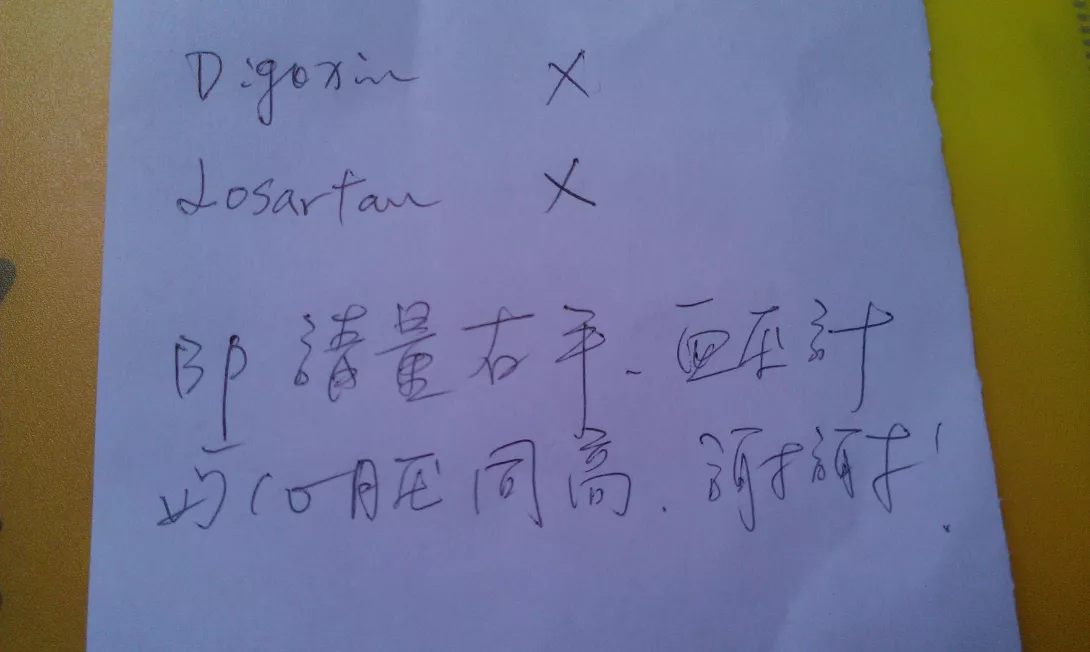 Digoxin X
Losartan X
BP 請量右手、血压計
与心脏压同高．謝謝！